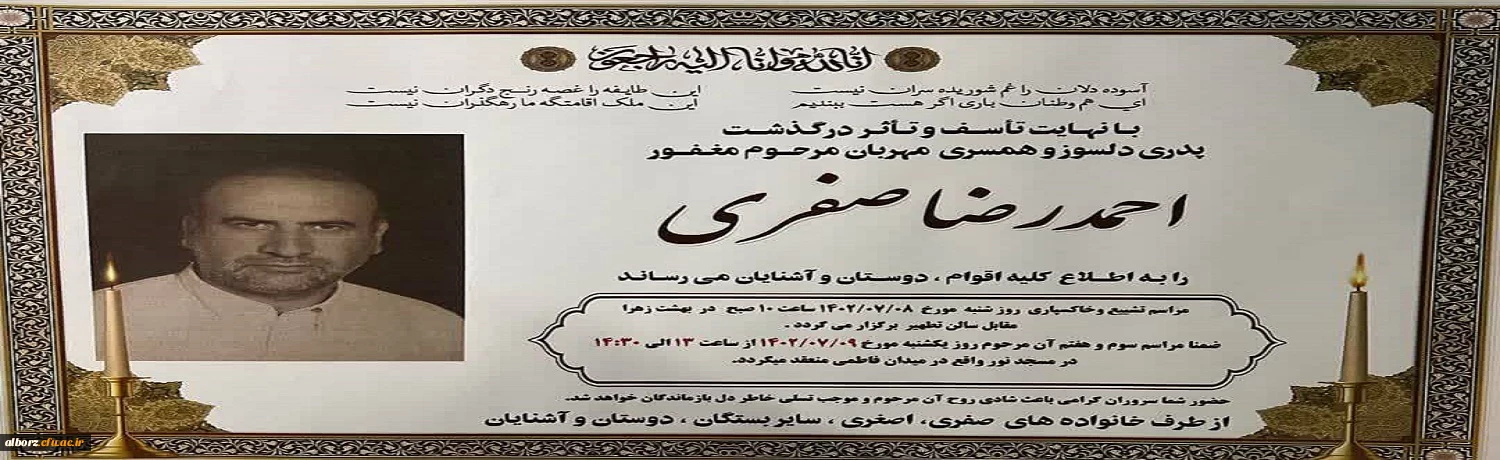 انا لله و انا الیه راجعون
آسوده دلان را غم شوریده سران نیست این طایفه را غصه رنج دگران نیست
ای هم وطنان باری اگر هست ببندیم این ملک اقامتگه ما رهگذران نیست
با نهایت تأسف و تأثر درگذشت
پدری دلسوز و همسری مهربان مرحوم مغفور
احمدرضا صفری
را به اطلاع کلیه اقوام ، دوستان و آشنایان می رساند
مراسم تشییع و خاکسپاری روز شنبه مورخ ۱۴۰۲/۰۷/۰۸ ساعت ۱۰ صبح در بهشت زهرا
مقابل سالن تطهیر برگزار می گردد .
ضمنا مراسم سوم و هفتم آن مرحوم روز یکشنبه مورخ ۱۴۰۲/۰۷/۰۹ از ساعت ۱۳ الی ۱۴:۳۰
در مسجد نور واقع در میدان فاطمی منعقد میگردد.
حضور شما سروران گرامی باعث شادی روح آن مرحوم و موجب تسلی خاطر دل بازماندگان خواهد شد.
از طرف خانواده های صفری، اصغری ، سایر بستگان ، دوستان و آشنایان
alborz.cfu.ac.ir